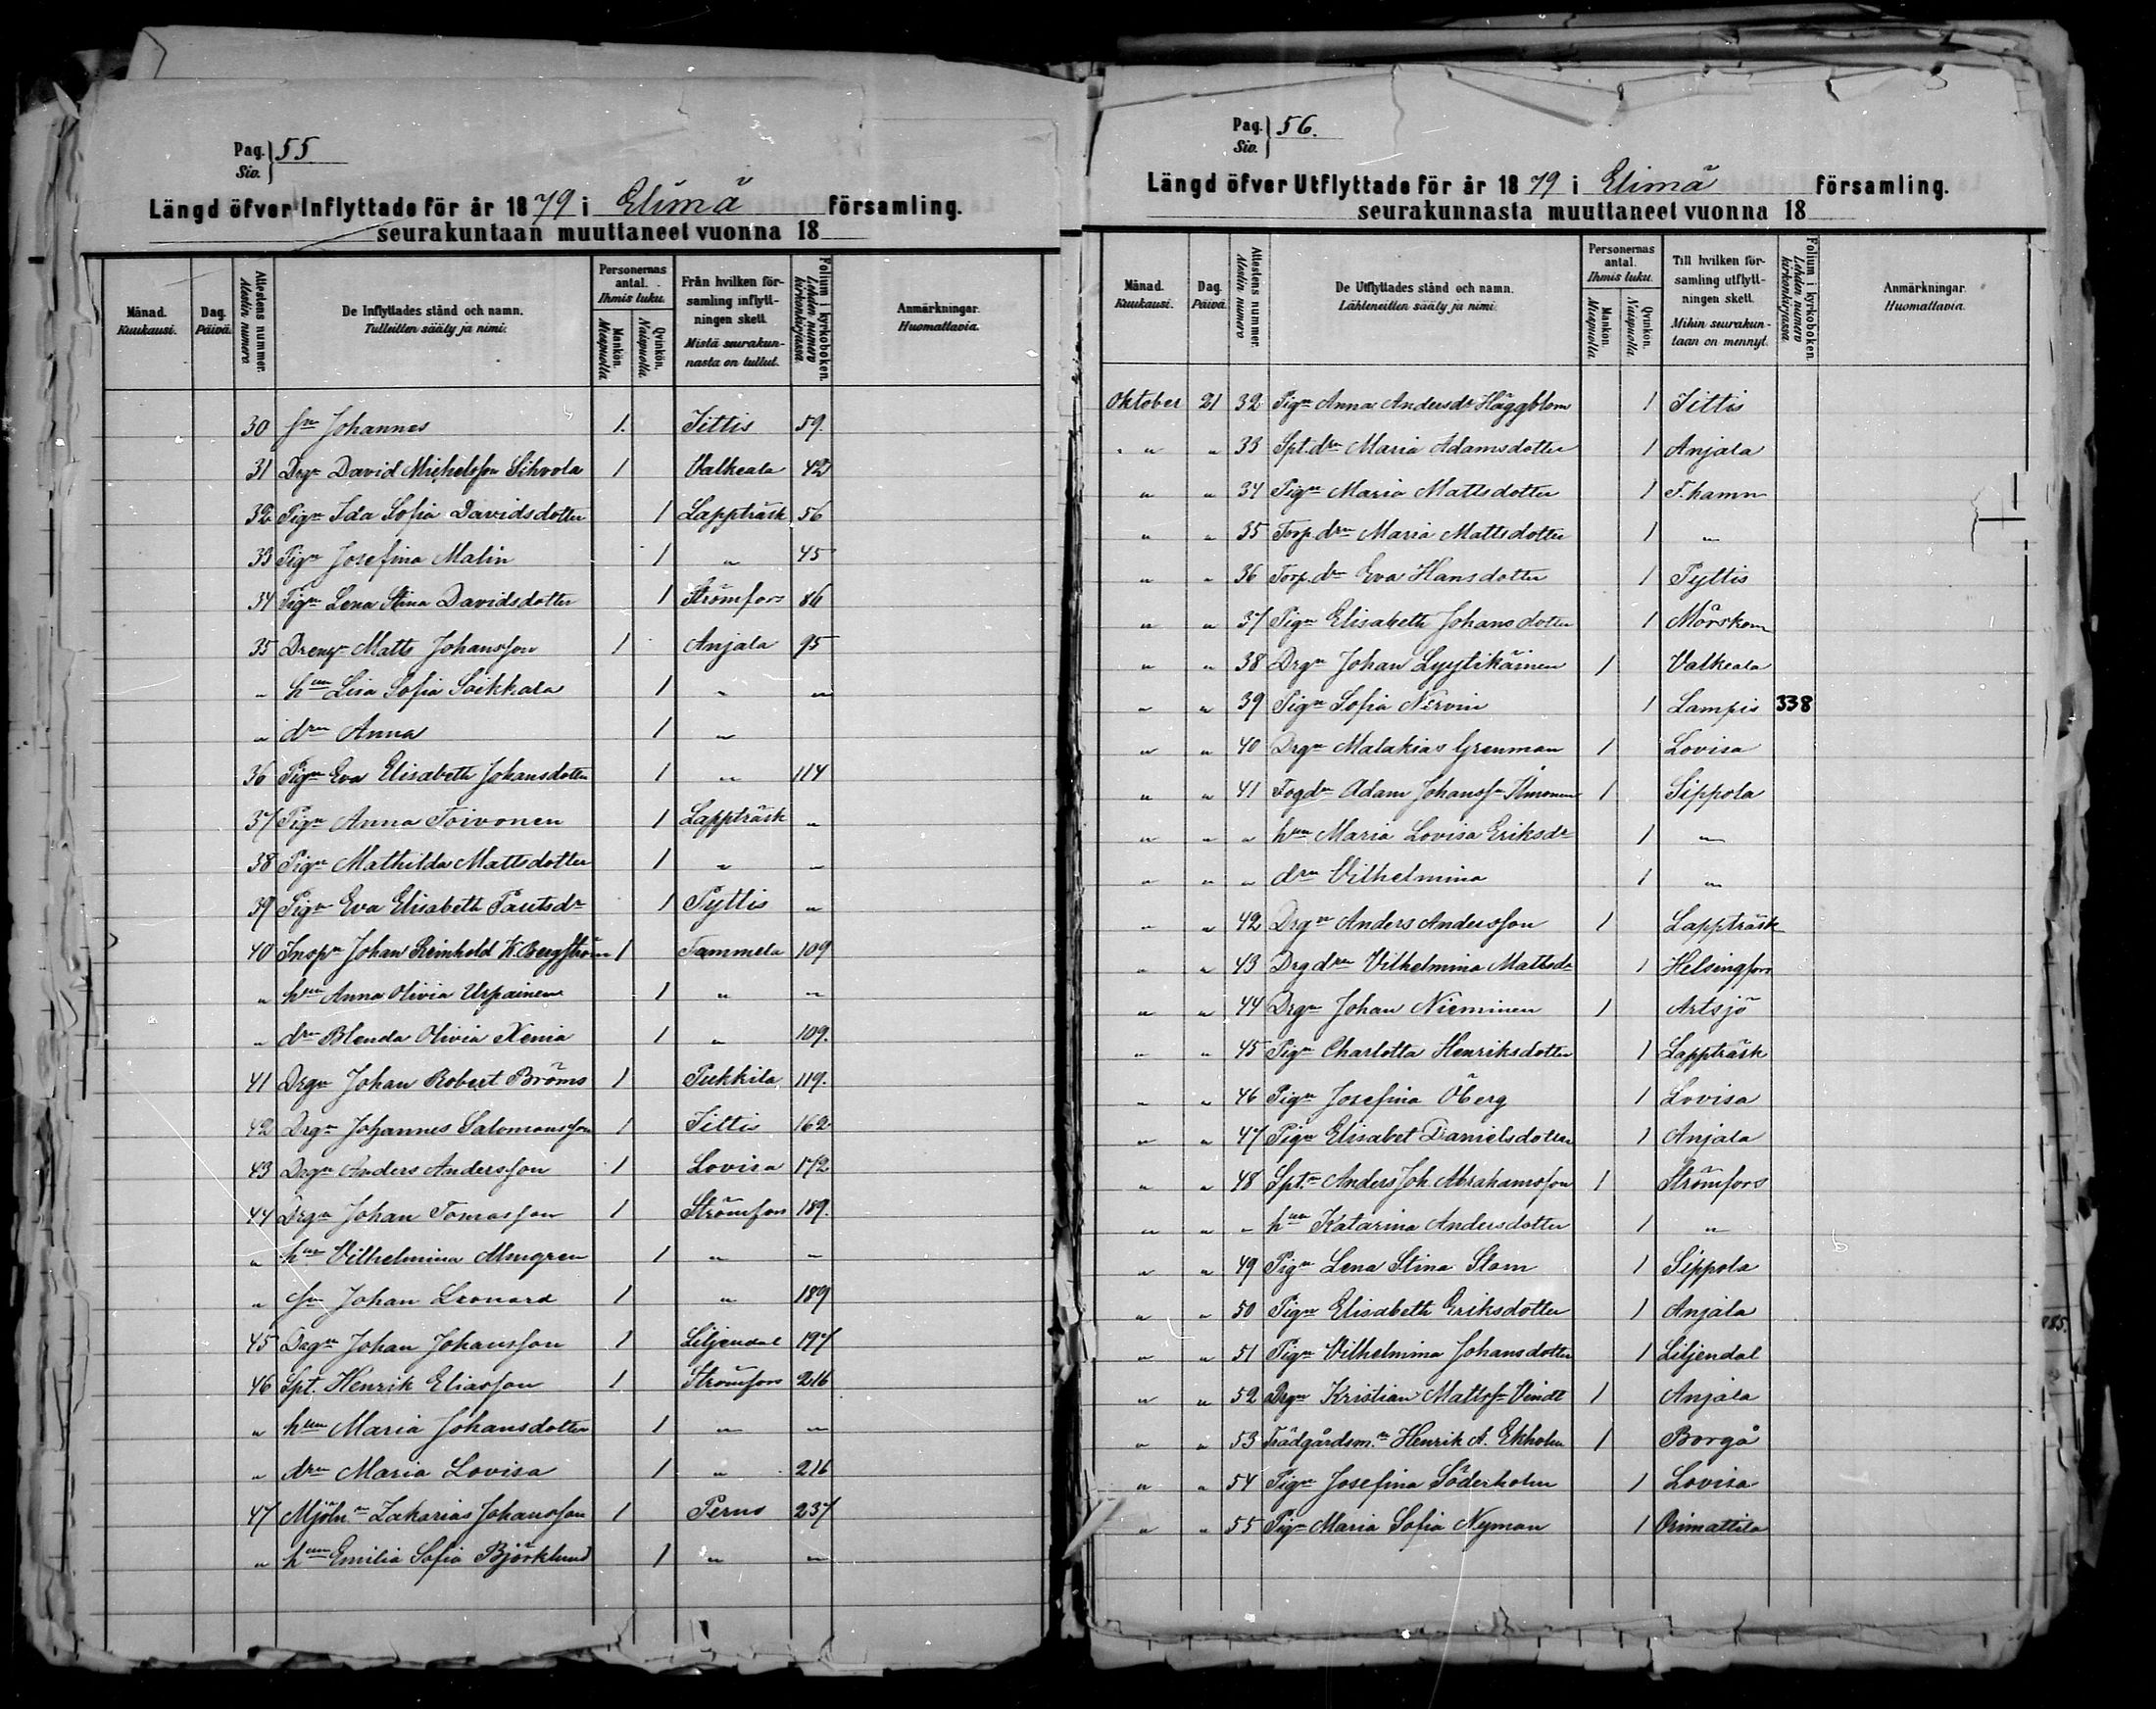 Pag. 55
Siv.
Längd öfver Inflyttade för år 1879 i Elimä församling.
seurakuntaan muuttaneet vuonna 18
Månad. Kuukausi. | Dag. Päivä. | Attestens nummer. Alestin numero | De Inflyttades stånd och namn. Tulleitten sääty ja nimi. | Personernas antal. Ihmis luku. Mankön. Miespuolta Qvinkön. Naispuolta. | Från hvilken församling inflyttningen skett. Mistä seurakunnasta on tullut. | Folium i kyrkoboken. Lehden numero kirkonkirjassa. | Anmärkningar. Huomattavia.
30 sn Johannes 1. Iittis 59
31 Drgn David Michelsson Sihvola 1 Valkeala 42
32 Pign Ida Sofia Davidsdotter 1 Lappträsk 56
33 Pign Josefina Malin 1 " 45
34 Pign Lena Stina Davidsdotter 1 Strömfors 86
35 Dreng Matts Johansson 1 Anjala 95
" hun Lisa Sofia Soikkala 1 " "
" drn Anna 1 "
36 Pign Eva Elisabeth Johansdotter 1 " 114
37 Pign Anna Toivonen 1 Lappträsk "
38 Pign Mathilda Mattsdotter 1 " "
39 Pign Eva Elisabeth Paulsdr 1 Pyttis "
40 Inspn Johan Reinhold K. Bergström 1 Tammela 109
" hun Anna Olivia Urpainen 1 " "
" drn Blenda Olivia Xenia 1 " 109.
41 Drgn Johan Robert Bröms 1 Pukkila 119.
42 Drgn Johannes Salomonsson 1 Iittis 162
43 Drgn Anders Andersson 1 Lovisa 172
44 Drgn Johan Tomasson 1 Strömfors 189.
" hun Vilhelmina Almgren 1 " "
" sn Johan Leonard 1 " 189
45 Drgn Johan Johansson 1 Liljendal 197
46 Spt. Henrik Eliasson 1 Strömfors 216
" hun Maria Johansdotter 1 " "
" drn Maria Lovisa 1 " 216
47 Mjöln. Zakarias Johansson 1 Perno 237
" hun Emilia Sofia Björklund 1 " "
Pag. 56.
Siv.
Längd öfver Utflyttade för år 1879 i Elimä församling.
seurakunnasta muuttaneet vuonna 18
Månad. Kuukausi. | Dag. Päivä. | Attestens nummer. Alestin numero | De Utflyttades stånd och namn. Lähteneitten sääty ja nimi. | Personernas antal. Ihmis luku. Mankön. Miespuolta Qvinkön. Naispuolta. | Till hvilken församling utflyttningen skett. Mihin seurakuntaan on mennyt. | Folium i kyrkoboken. Lehden numero kirkonkirjassa. | Anmärkningar. Huomattavia.
Oktober 21 32 Pign Anna Andersdr Häggblom 1 Iittis
" " 33 Spt.drn Maria Adamsdotter 1 Anjala
" " 34 Pign Maria Mattsdotter 1 F.hamn
" " 35 Torp.drn Maria Mattsdotter 1 "
" " 36 Torp.dr Eva Hansdotter 1 Pyttis
" " 37 Pign Elisabeth Johansdotter 1 Mörskom
" " 38 Drgn Johan Lyytikäinen 1 Valkeala
" " 39 Pign Sofia Nervin 1 Lampis 338
" " 40 Drgn Malakias Grenman 1 Lovisa
" " 41 Fogdn Adam Johanss. Ilmonen 1 Sippola
" " " hun Maria Lovisa Eriksdr 1 "
" " " drn Vilhelmina 1 "
" " 42 Drgn Anders Andersson 1 Lappträsk
" " 43 Drg drn Vilhelmina Mattsdr 1 Helsingfors
" " 44 Drgn Johan Nieminen 1 Artsjö
" " 45 Pign Charlotta Henriksdotter 1 Lappträsk
" " 46 Pign Josefina Öberg 1 Lovisa
" " 47 Pign Elisabet Danielsdotter 1 Anjala
" " 48 Spt.n Anders Joh. Abrahamsson 1 Strömfors
" " " hun Katarina Andersdotter 1 "
" " 49 Pign Lena Stina Stam 1 Sippola
" " 50 Pign Elisabeth Eriksdotter 1 Anjala
" " 51 Pign Vilhelmina Johansdotter 1 Liljendal
" " 52 Drgn Kristian Mattss. Vindt 1 Anjala
" " 53 Trädgårdsm.n Henrik A. Ekholm 1 Borgå
" " 54 Pign Josefina Söderholm 1 Lovisa
" " 55 Pign Maria Sofia Nyman 1 Orimattila